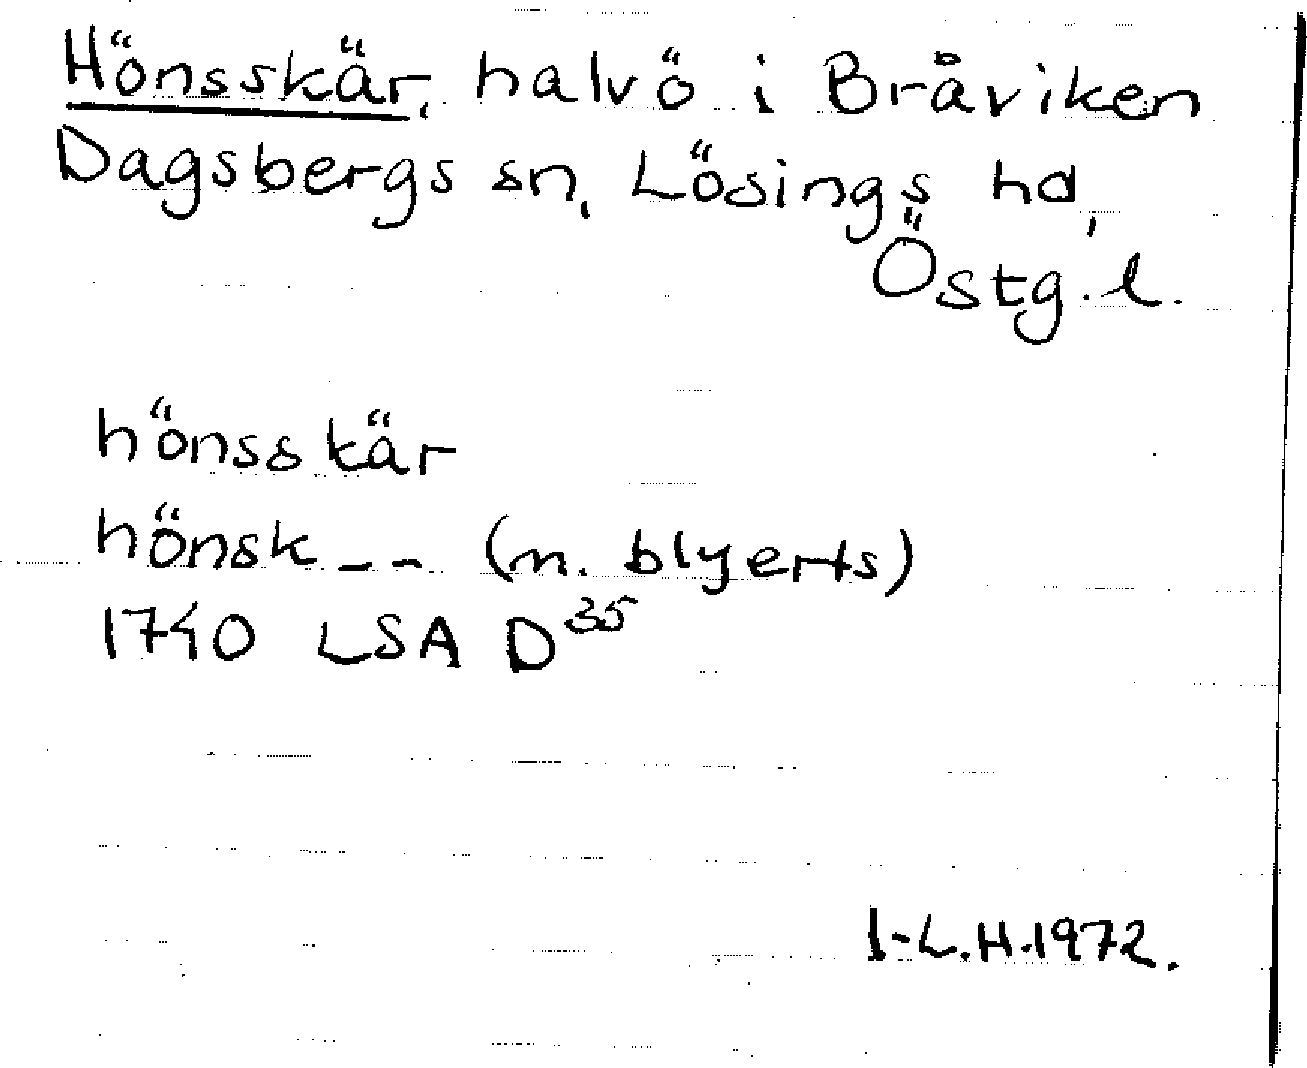 Hönsskär, halvö i Bråviken
Dagsbergs sn, Lösings hd,
Östg. l.
hönsskär
hönsk_ _ _ (m. blyerts)
1740 LSA D35
I-L.H.1972.